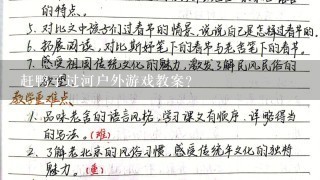 的特点。
5. 对比文中孩子们过春节的情景,说说自己是怎样过春节的。
6. 拓展阅读,对比斯好笔下的春节与老舍笔下的春节。
7. 感受祖国传统文化的魅力,激发了解民风民俗的
赶鸭子过河户外游戏教案?
教学重难点、
1. 品味老舍的语言风格,学习课文有顺序、详略得当
的写法。(难)
2. 了解老北京的风俗习惯,感受传统年文化的独特
魅力。(重)